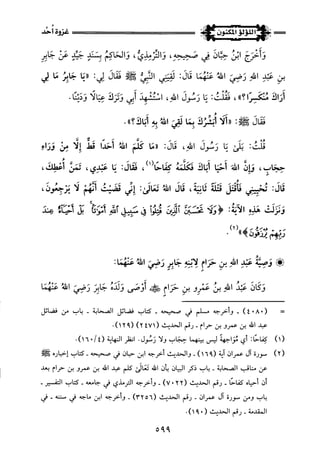 اللؤلؤ المكنون
غزوة أُحُد
وَأَخْرَجَ ابْنُ حِبَّانَ فِي صَحِيحِهِ، وَالتِّرْمِذِيُّ، وَالحَاكِمُ بِسَنَدٍ جَيِّدٍ عَنْ جَابِرِ
بنِ عَبْدِ اللهِ رَضِيَ اللهُ عَنْهُمَا قَالَ: لَقِيَنِي النَّبِيُّ ﷺ فَقَالَ لِي: «يَا جَابِرُ مَا لِي
أَرَاكَ مُنْكَسِرًا؟»، فَقُلْتُ: يَا رَسُولَ اللهِ، اسْتُشْهِدَ أَبِي وَتَرَكَ عِيَالًا وَدَيْنًا.
فَقَالَ ﷺ: «أَلَا أُبَشِّرُكَ بِمَا لَقِيَ اللهُ بِهِ أَبَاكَ؟».
قُلْتُ: بَلَى يَا رَسُولَ اللهِ، قَالَ: «مَا كَلَّمَ اللهُ أَحَدًا قَطُّ إِلَّا مِنْ وَرَاءِ
حِجَابٍ، وَإِنَّ اللهَ أَحْيَا أَبَاكَ فَكَلَّمَهُ كِفَاحًا(١)، فَقَالَ: يَا عَبْدِي، تَمَنَّ أُعْطِكَ،
قَالَ: تُحْيِينِي فَأُقْتَلُ قَتْلَةً ثَانِيَةً، قَالَ اللهُ تَعَالَى: إِنِّي قَضَيْتُ أَنَّهُمْ لَا يَرْجِعُونَ،
وَنَزَلَتْ هَذِهِ الآيَةُ: ﴿وَلَا تَحْسَبَنَّ الَّذِينَ قُتِلُوا فِي سَبِيلِ اللَّهِ أَمْوَاتًا بَلْ أَحْيَاءٌ عِندَ
رَبِّهِمْ يُرْزَقُونَ﴾»(٢).
وَصِيَّةُ عَبْدِ اللهِ بنِ حَرَامٍ لِابْنِهِ جَابِرٍ رَضِيَ اللهُ عَنْهُمَا:
وَكَانَ عَبْدُ اللهِ بنُ عَمْرِو بنِ حَرَامٍ ﷺ أَوْصَى وَلَدَهُ جَابِرَ رَضِيَ اللهُ عَنْهُمَا
= (٤٠٨٠) ـ وأخرجه مسلم في صحيحه ـ كتاب فضائل الصحابة ـ باب من فضائل
عبد الله بن عمرو بن حرام ـ رقم الحديث (٢٤٧١) (١٢٩).
(١) كِفَاحًا: أي مُوَاجهةً ليس بينهما حِجَاب ولا رَسُول. انظر النهاية (١٦٠/٤).
(٢) سورة آل عمران آية (١٦٩) ـ والحديث أخرجه ابن حبان في صحيحه ـ كتاب إخباره ﷺ
عن مناقب الصحابة ـ باب ذكر البيان بأن الله تَعَالَىٰ كلم عبد الله بن عمرو بن حرام بعد
أن أحياه كفاحًا ـ رقم الحديث (٧٠٢٢) ـ وأخرجه الترمذي في جامعه ـ كتاب التفسير ـ
باب ومن سورة آل عمران ـ رقم الحديث (٣٢٥٦) ـ وأخرجه ابن ماجه في سننه ـ في
المقدمة ـ رقم الحديث (١٩٠).
٥٩٩